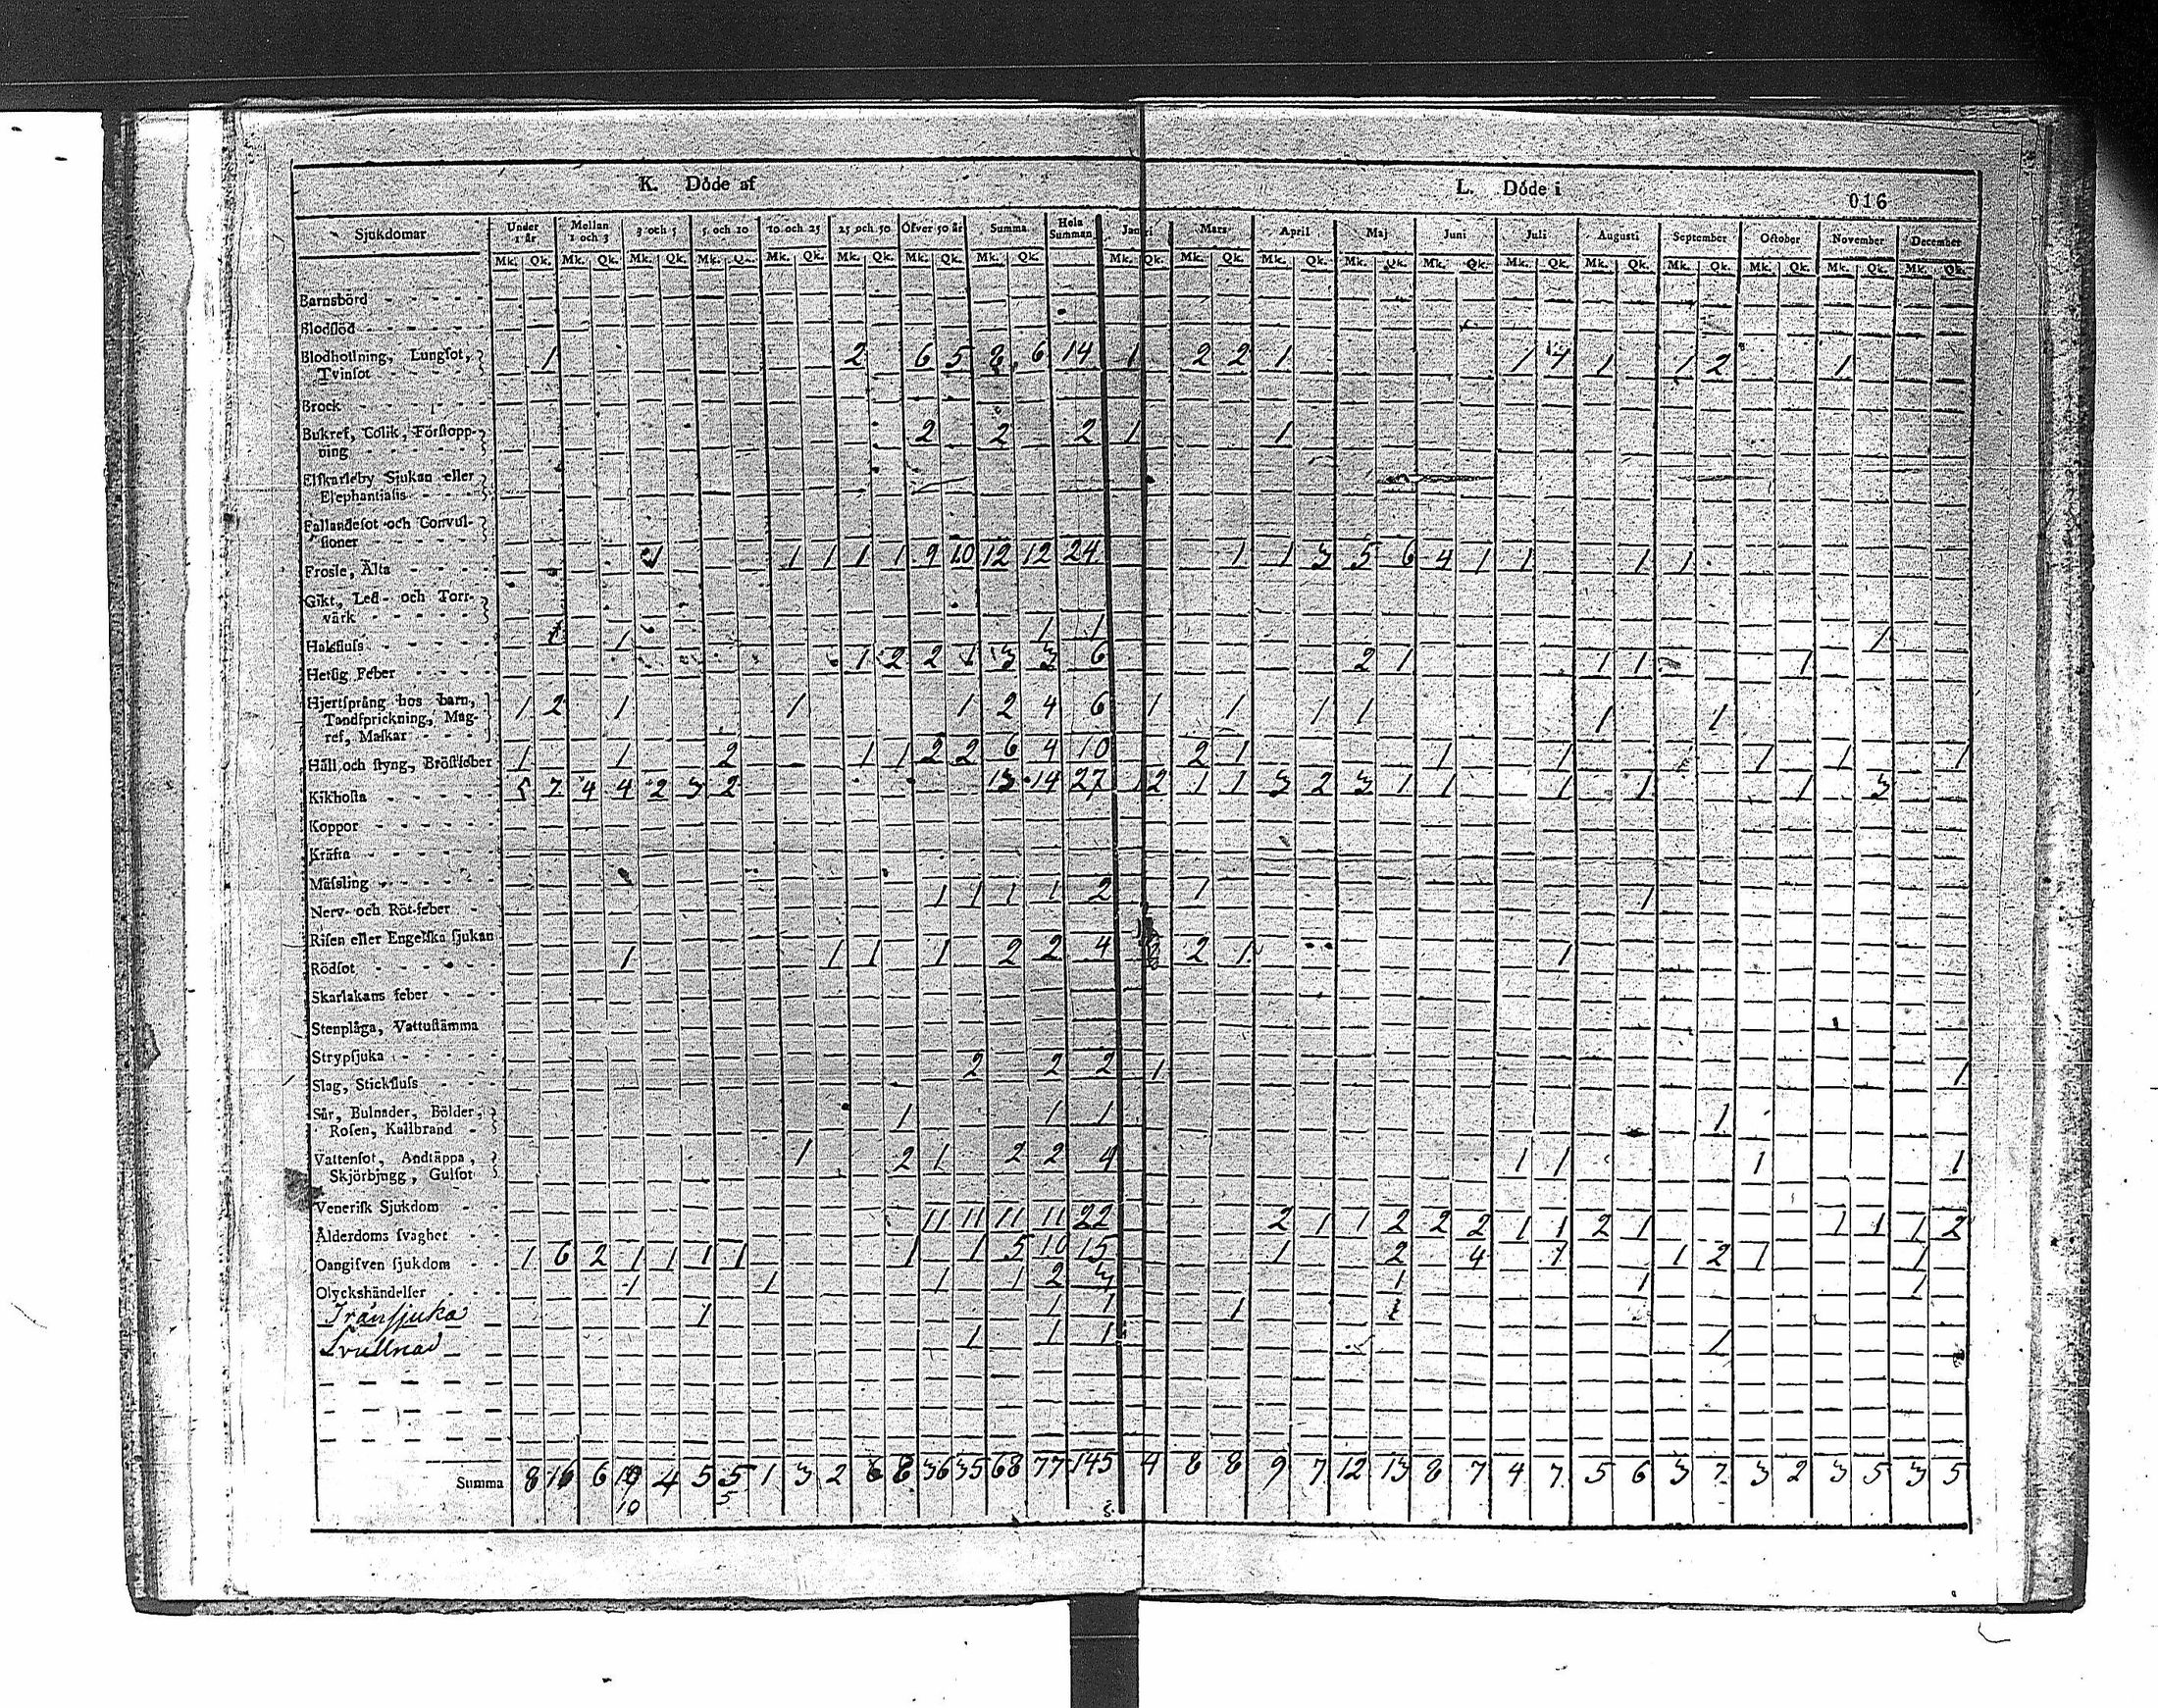 K. Döde af
L. Döde i
016
Sjukdomar Under 1 år Mellan 1 och 3 3 och 5 5 och 10 10 och 25 25 och 50 Öfver 50 år Summa Hela Summan Mars April Maj Juni Juli Augusti September October November December
Mk. Qk. Mk. Qk. Mk. Qk. Mk. Qk. Mk. Qk. Mk. Qk. Mk. Qk. Mk. Qk. Mk. Qk. Mk. Qk. Mk. Qk. Mk. Qk. Mk. Qk. Mk. Qk. Mk. Qk. Mk. Qk. Mk. Qk. Mk. Qk. Mk. Qk.
Barnsbörd
Blodſlöd
Blodhoſtning, Lungſot, 1 2 6 5 8 6 14 1 2 2 1 1 1 1 2 1
Tvinſot
Brock
Bukref, Colik, Förſtopp- 2 2 2 1 1
ning
Elſkarleby Sjukan eller
Elephantiaſis
Fallandeſot och Convul-
ſioner
Froſſe, Älta 1 1 1 1 1 9 10 12 12 24 1 1 3 5 6 4 1 1 1 1
Gikt, Led- och Torr-
värk
Halsfluſs 1 1 1 1
Hetſig Feber 1 2 2 1 3 3 6 2 1 1 1 1
Hjertſprång hos barn, 1 2 1 1 1 2 4 6 1 1 1 1 1 1
Tandſprickning, Mag-
ref, Maſkar
Håll och ſtyng, Bröſtfeber 1 1 2 1 1 2 2 6 4 10 2 1 1 1 1 1 1
Kikhoſta 5 7 4 4 2 3 2 13 14 27 1 2 1 1 3 2 3 1 1 1 1 1 3
Koppor
Kräfta
Mäſsling
Nerv- och Röt-feber 1 1 1 1 2 1 1
Riſen eller Engelſka ſjukan
Rödſot 1 1 1 1 2 2 4 2 1 1
Skarlakans feber
Stenplåga, Vattuſtämma
Strypſjuka
Slag, Stickfluſs 2 2 2 1 1
Sår, Bulnader, Bölder, 1 1 1 1
Roſen, Kallbrand
Vattenſot, Andtäppa, 1 2 1 2 2 4 1 1 1 1
Skjörbjugg, Gulſot
Veneriſk Sjukdom
Ålderdoms ſvaghet 11 11 11 11 22 2 1 1 2 2 2 1 1 2 1 1 1 1 2
Oangifven ſjukdom 1 6 2 1 1 1 1 1 1 5 10 15 1 2 4 1 1 2 1 1
Olyckshändelſer 1 1 1 1 2 3 1 1 1
Tränsjuka 1 1 1 1
Svullnad 1 1 1 1
Summa 8 16 6 10 4 5 5 1 3 2 6 8 36 35 68 77 145 4 8 8 9 7 12 13 8 7 4 7 5 6 3 7 3 2 3 5 3 5
10 5